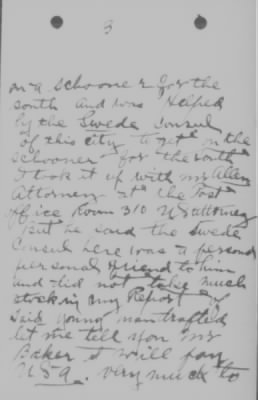 3
on a schooner for the
south and was Helped
by the Swede Consul
of this city to get on the
schooner for the south
I took it up with mr Allen
Attorney at the Post
office Room 310 US attorney
But he said the Swede
Consul here was a personal
personal friend to him
and did not take much
stock in my Report of
said young man
let me tell you mr
Baker it will pay
USA. very much to